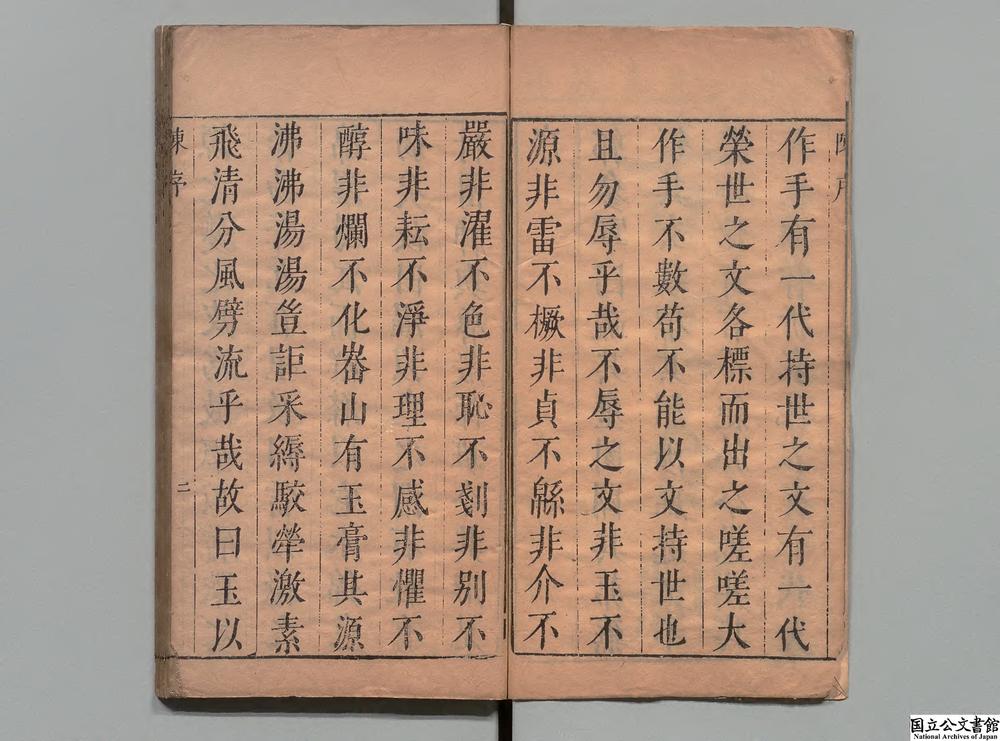 陳序
作手有一代持世之文有一代
榮世之文各標而出之嗟嗟大
作手不數茍不能以文持世也
且勿辱乎哉不辱之文非玉不
源非雷不橛非貞不緜非介不
嚴非濯不色非恥不剗非別不
味非耘不淨非理不感非懼不
醇非爛不化峚山有玉膏其源
沸沸湯湯豈詎采縟駮犖激素
飛清分風劈流乎哉故曰玉以
陳序
二
国立公文書館
National Archives of Japan